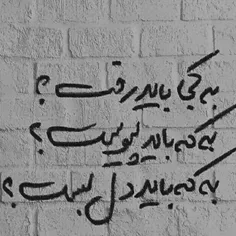 به کجا باید رفت ؟
به که باید پیوست ؟
به که باید دل بست ؟